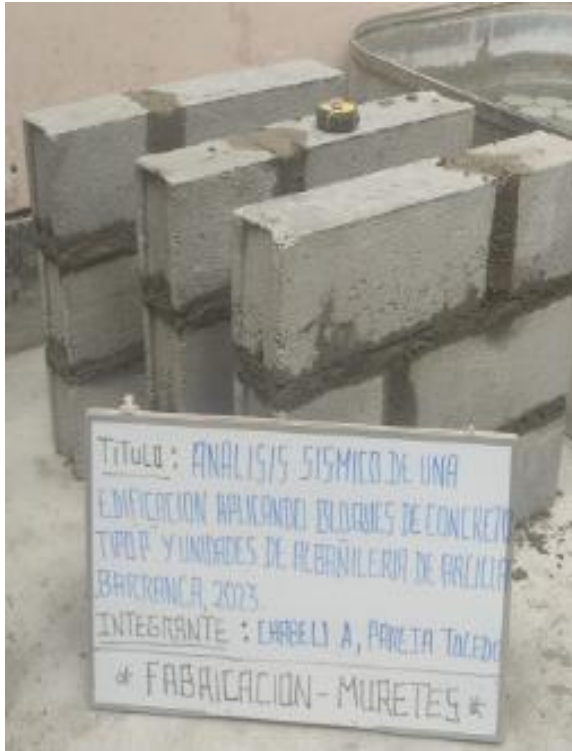 TITULO: ANALISIS SISMICO DE UNA
EDIFICACION APLICANDO BLOQUES DE CONCRETO
TIPO P Y UNIDADES DE ALBAÑILERIA DE ARCILLA
BARRANCA, 2023
INTEGRANTE: A, PAREJA TOLEDO
* FABRICACION - MURETES *